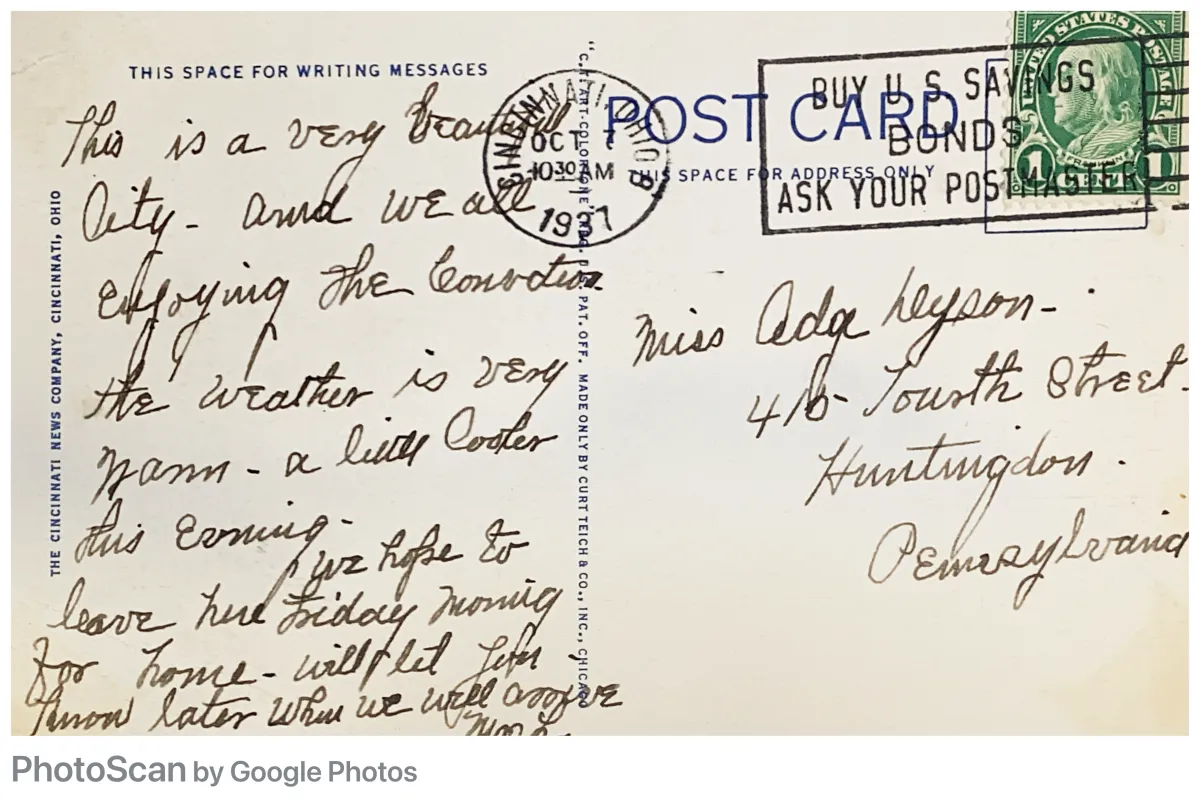 THIS SPACE FOR WRITING MESSAGES
This is a very beautiful
City - and we all
enjoying the Convention
the weather is very
warm - a little cooler
this Evening -
we hope to
leave here Friday morning
for home - will let you
know later when we will arrive
THE CINCINNATI NEWS COMPANY, CINCINNATI, OHIO
"C.T. ART-COLORTONE" REG. U.S. PAT. OFF. MADE ONLY BY CURT TEICH & CO., INC., CHICAGO
CINCINNATI, OHIO 8
OCT 7
10 30 AM
1937
POST CARD
THIS SPACE FOR ADDRESS ONLY
BUY U.S. SAVINGS
BONDS
ASK YOUR POSTMASTER
UNITED STATES POSTAGE
FRANKLIN
1 1
Miss Ada
Fourth Street.
Huntingdon.
Pennsylvania
PhotoScan by Google Photos